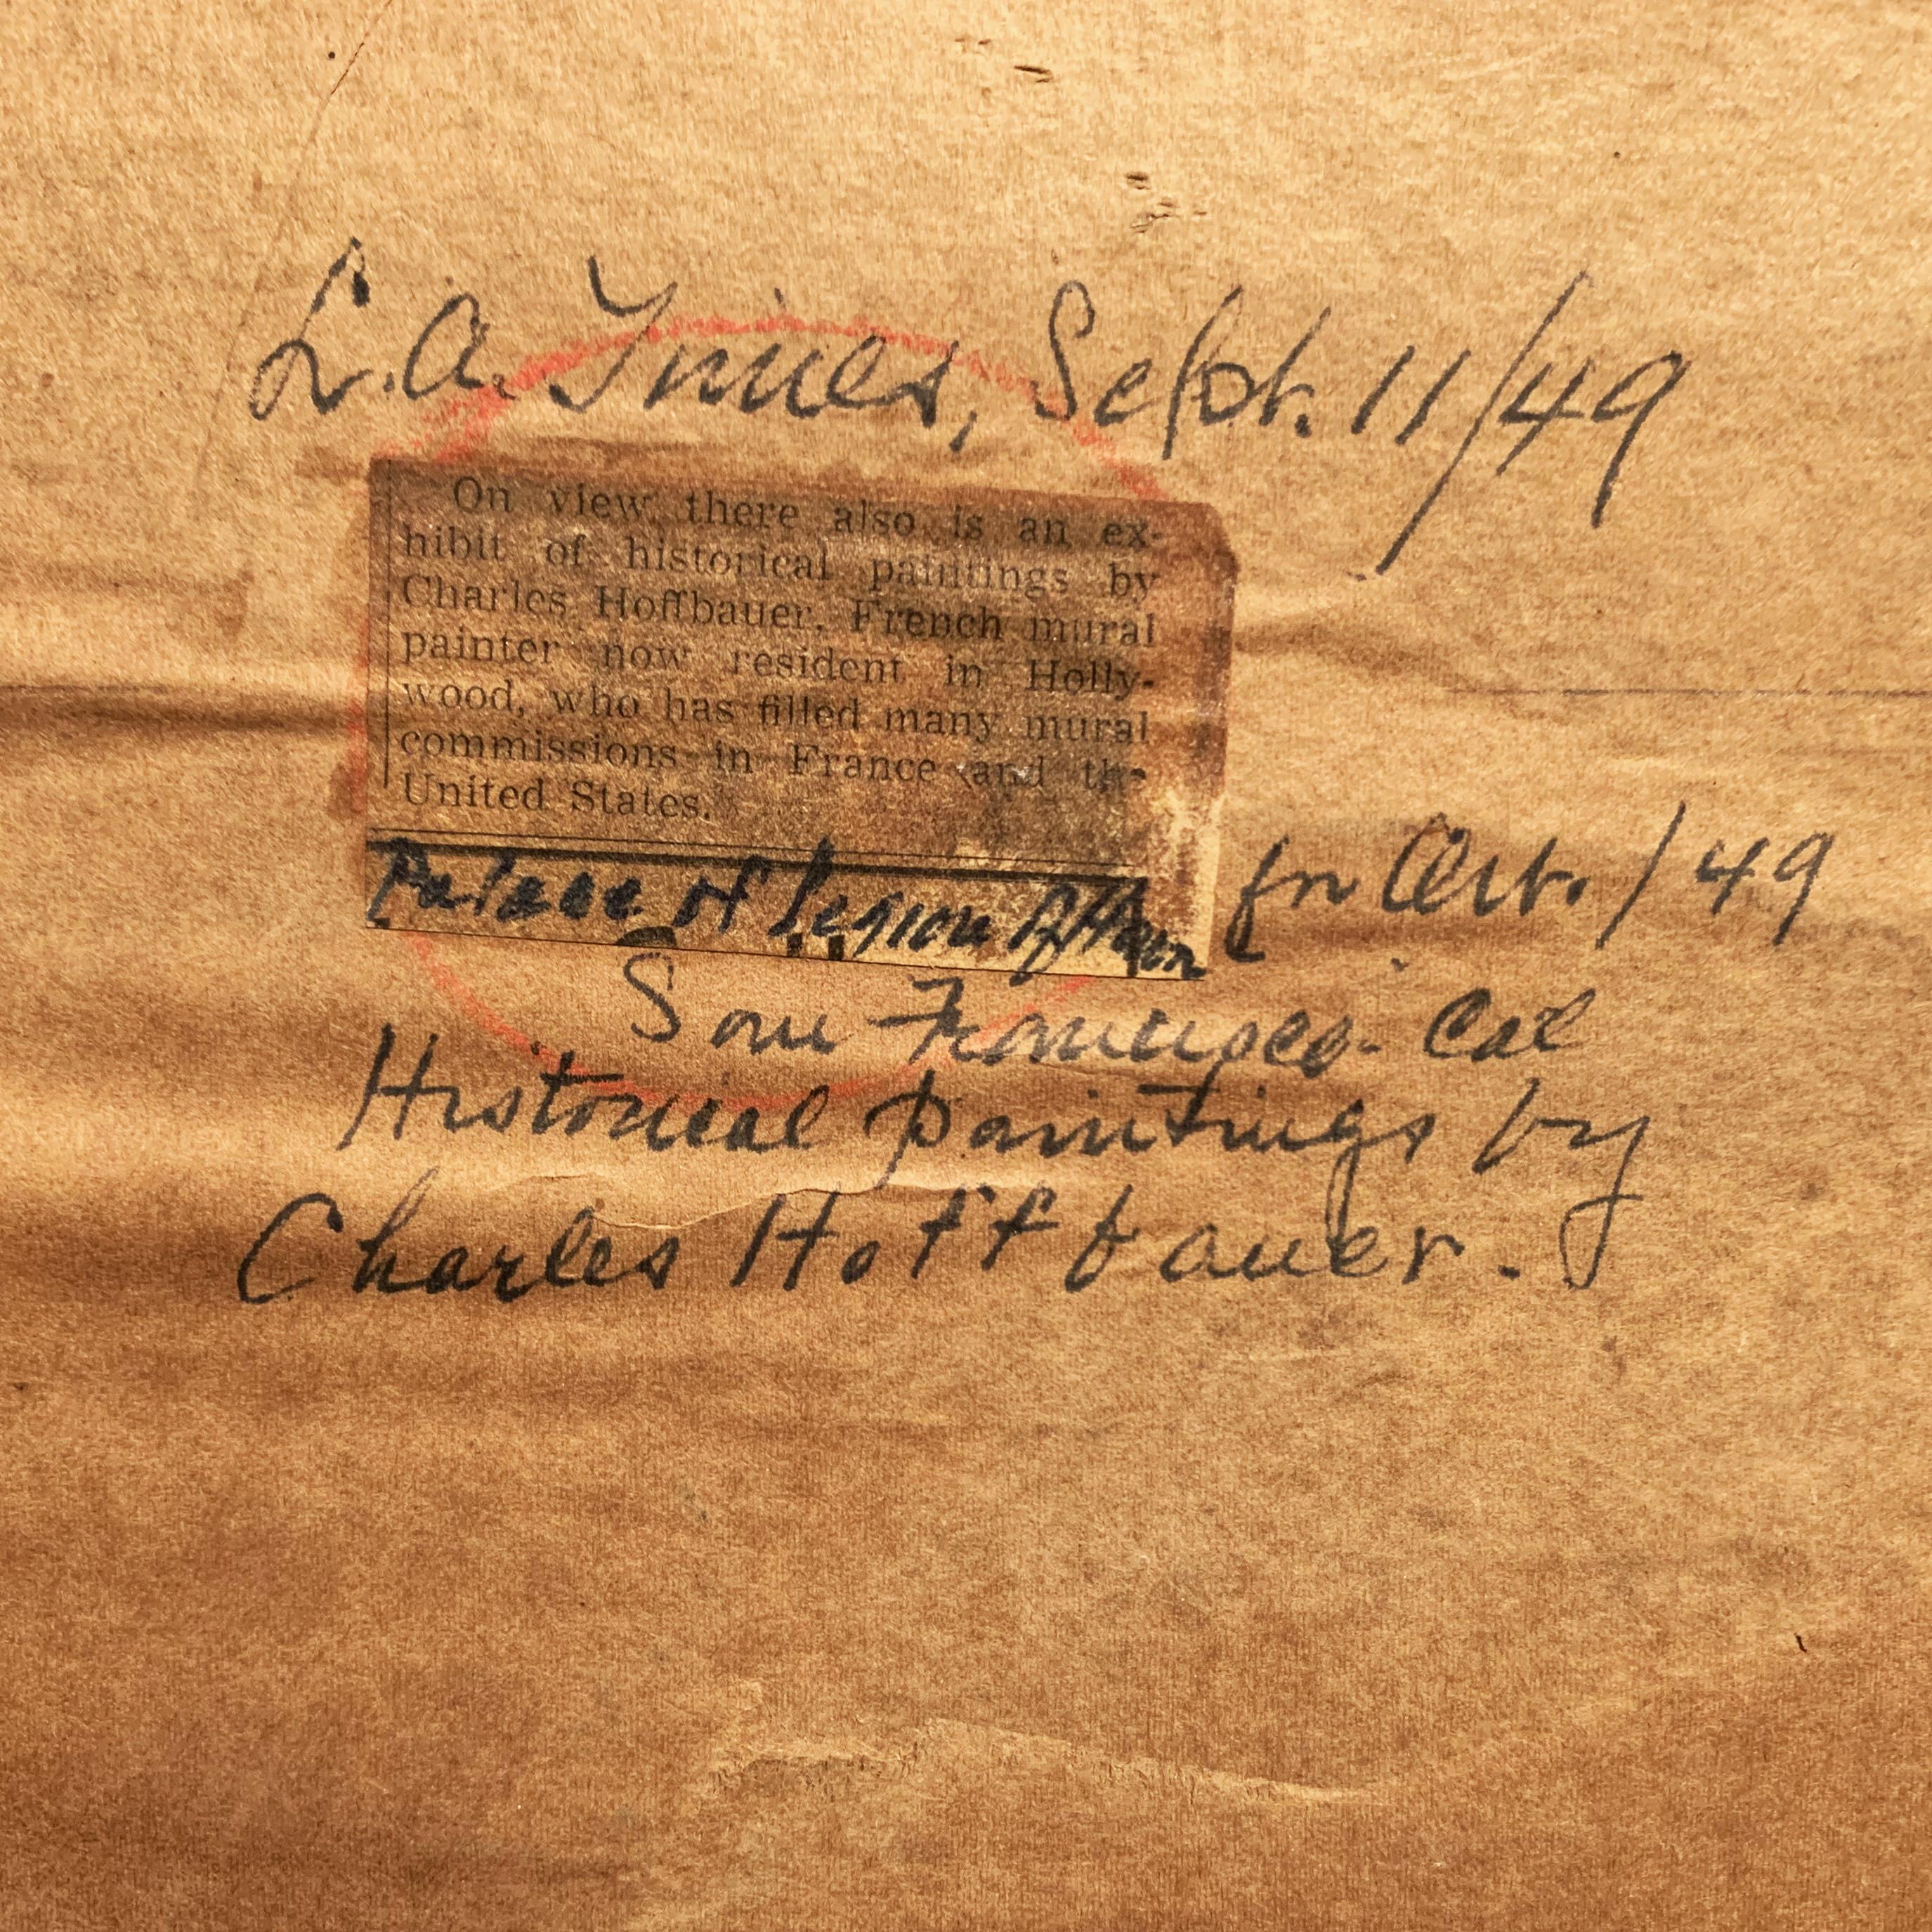 L.A. Times, Sept. 11/49
On view there also is an ex-
hibit of historical paintings by
Charles Hoffbauer, French mural
painter now resident in Holly-
wood, who has filled many mural
commissions in France and the
United States.
Palace of Legion of Honor for Oct. / 49
San Francisco. Cal
Historical paintings by
Charles Hoffbauer.